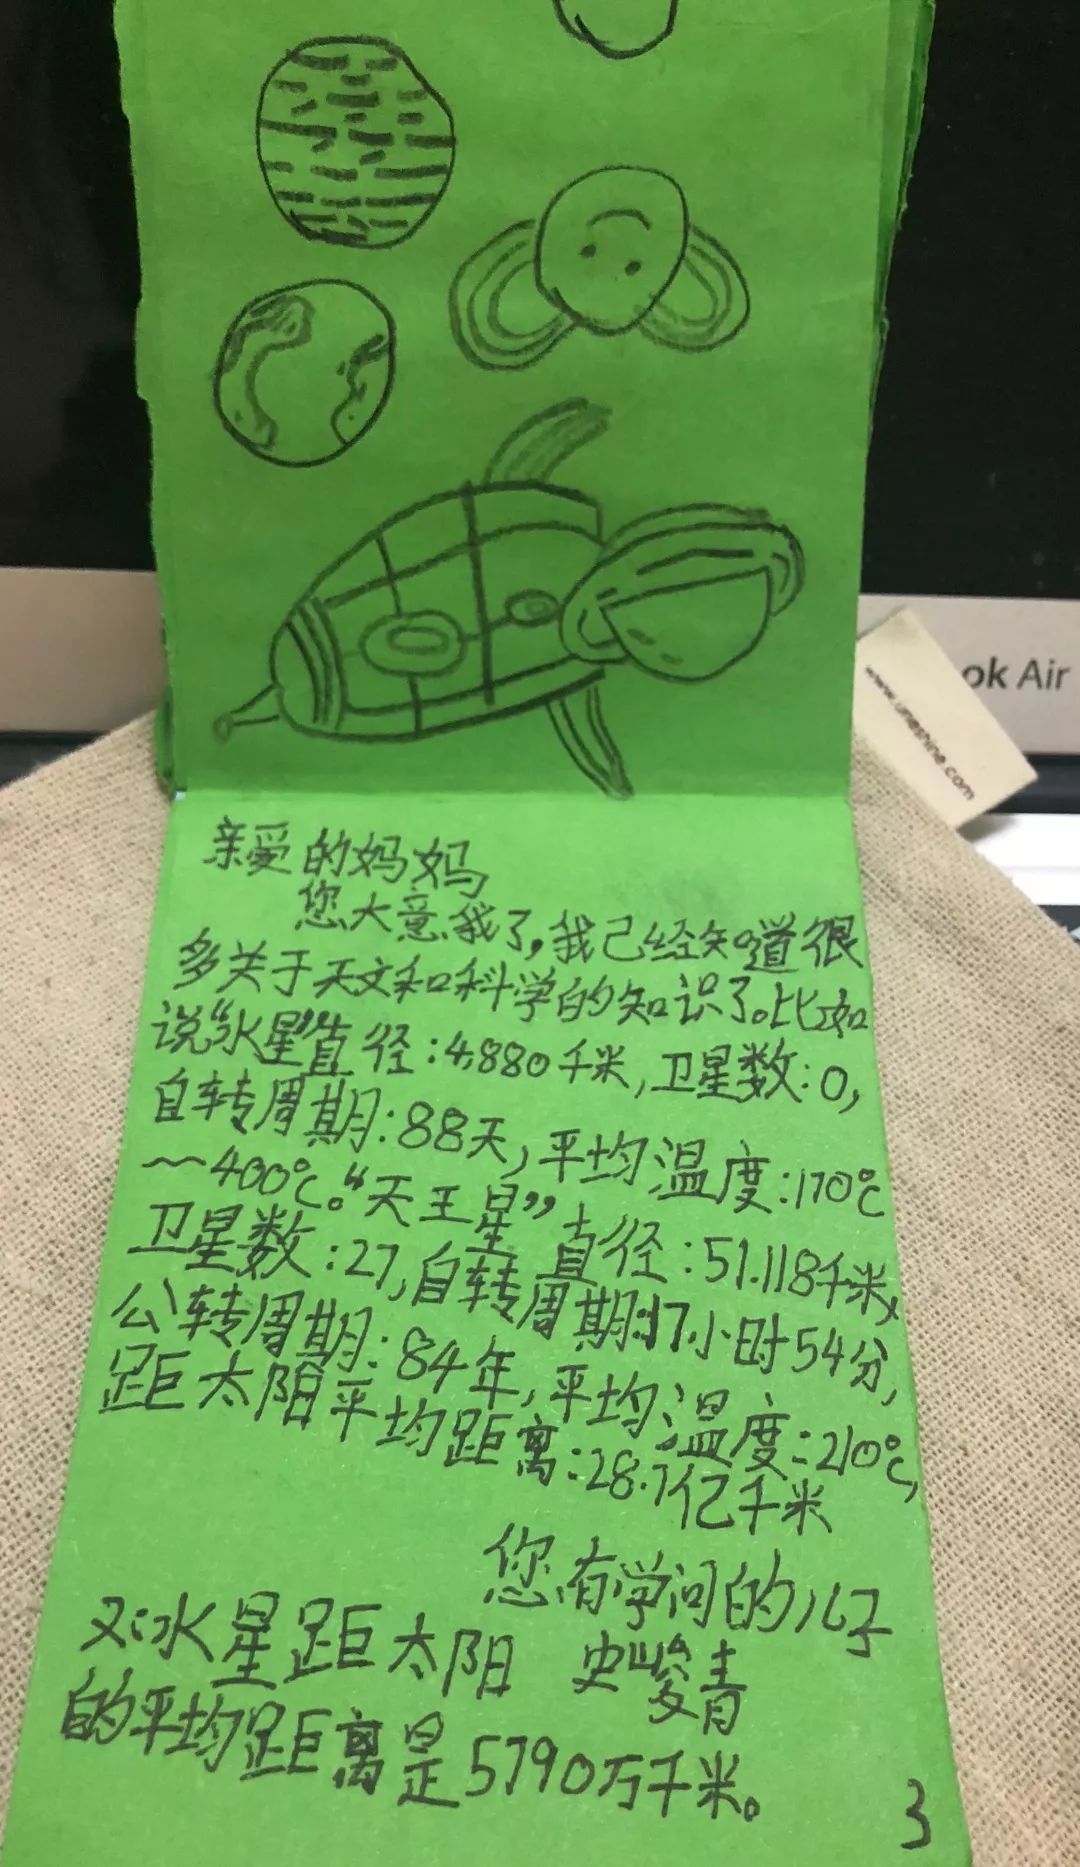 ok Air
www.uneshine.com
亲爱的妈妈
您大意我了,我已经知道很
多关于天文和科学的知识了。比如
说“水星”直径:4,880千米,卫星数:0,
自转周期:88天,平均温度:170℃
~400℃。“天王星”直径:51.118千米,
卫星数:27,自转周期:17小时54分,
公转周期:84年,平均温度:210℃,
距太阳平均距离:28.7亿千米
您有学问的儿子
史峻青
又:水星距太阳
的平均距离是5790万千米。
3